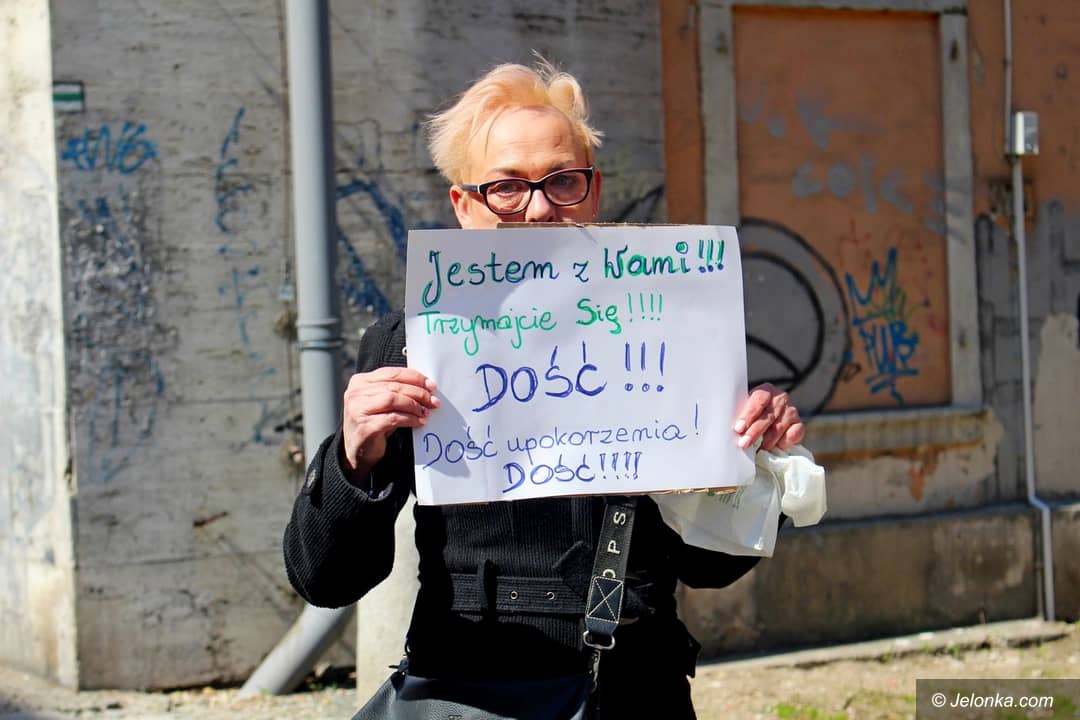 Jestem z Wami!!!
Trzymajcie Się!!!!
DOŚĆ!!!
Dość upokorzenia!
DOŚĆ!!!!
OPS
© Jelonka.com